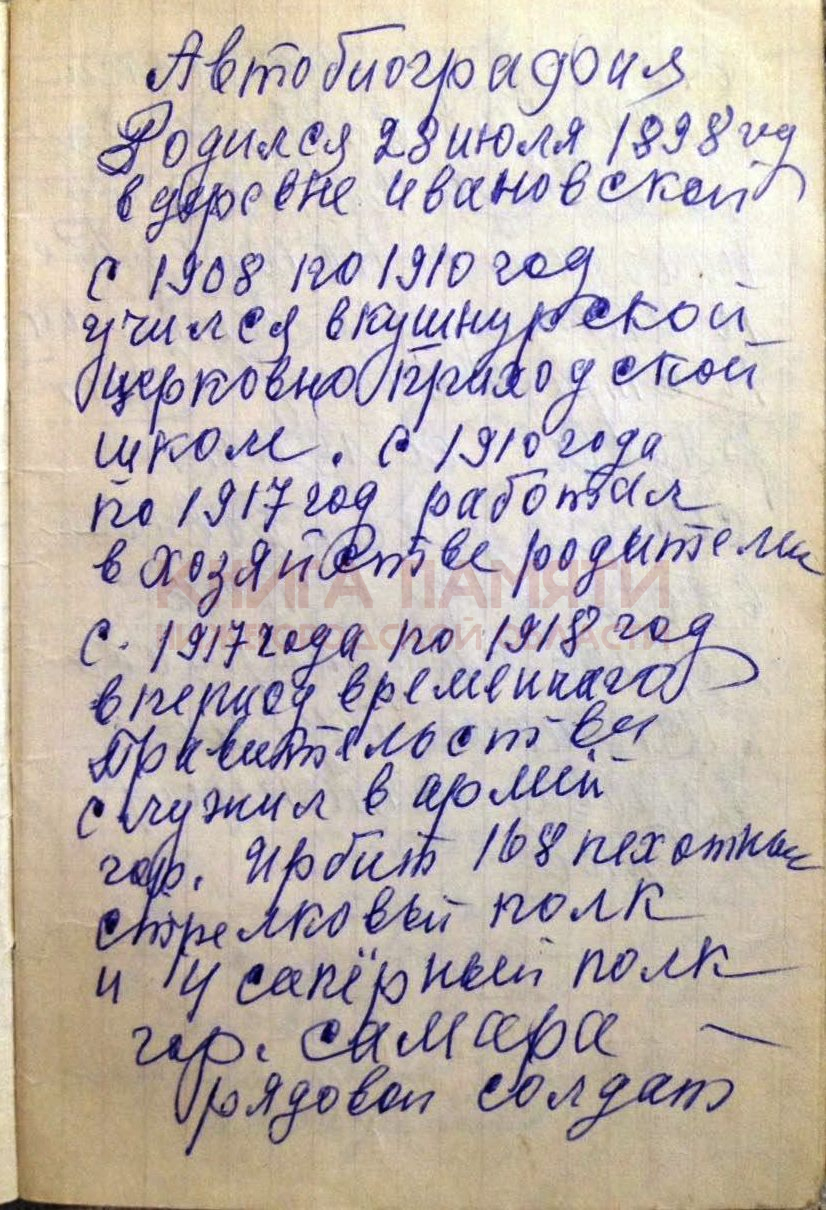 Автобиография
Родился 28 июля 1898 год
в деревне ивановской
с 1908 по 1910 год
учился в кушнурской
церковно приходской
школе. с 1910 года
по 1917 год работал
в хозяйстве родителей
КНИГА ПАМЯТИ
с. 1917 года по 1918 год
НИЖЕГОРОДСКОЙ ОБЛАСТИ
в период временнаго
правительства
служил в армий
гор. Ирбит 168 пехотный
стрелковый полк
и 4 сапёрный полк
гор. самара
рядовой солдат